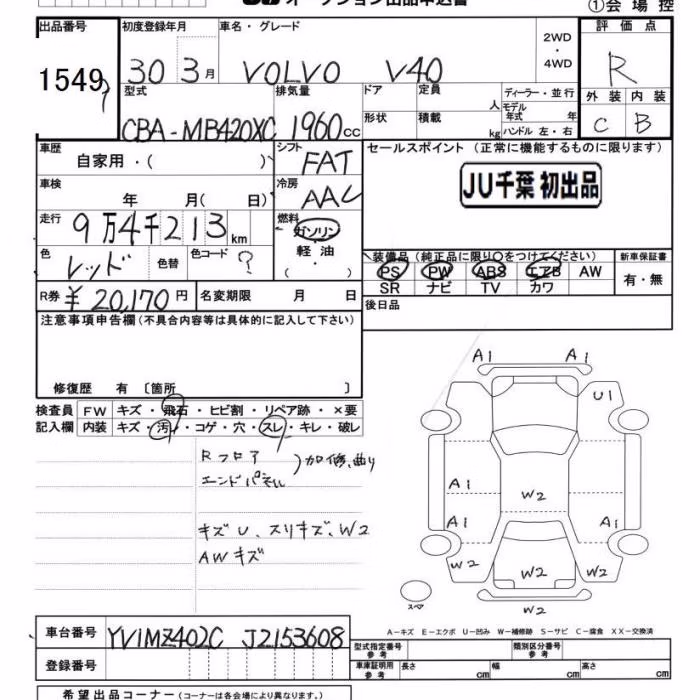 ①会 場 控
出品番号 初度登録年月 車名・グレード 2WD・4WD 評 価 点
1549 30 3月 VOLVO V40 R
型式 排気量 ドア 定員 人 ディーラー・並行 外 装 内 装
CBA-MB420XC 1960cc 形状 積載 kg モデル年式 年 ハンドル 左・右 C B
車歴 シフト セールスポイント (正常に機能するものに限ります)
自家用・( ) FAT
JU千葉 初出品
車検 年 月( 日) 冷房 AAC
走行 9万4千213km 燃料 ガソリン・軽油・( )
色 レッド 色替 色コード ? 装備品 (純正品に限り○をつけてください) 新車保証書
PS PW ABS エアB AW 有・無
SR ナビ TV カワ
R券 ¥20,170円 名変期限 月 日 後日品
注意事項申告欄 (不具合内容等は具体的に記入して下さい)
修復歴 有 〔箇所 〕
検査員 FW キズ・飛石・ヒビ割・リペア跡・×要
記入欄 内装 キズ・汚れ・コゲ・穴・スレ・キレ・破レ
Rフロア
エンドパネル )加修、曲り
キズU、スリキズ、W2
AWキズ
A1 A1
U1
A1
W2
A1 A1
W2 W2 W2
W2
スペア
A−キズ E−エクボ U−凹み W−補修跡 S−サビ C−腐食 XX−交換済
車台番号 YV1MZ402C J2153608
型式指定番号 参考 類別区分番号 参考
登録番号 車庫証明用 参考 長さ cm 幅 cm 高さ cm
希望出品コーナー (コーナーは各会場により異なります。)